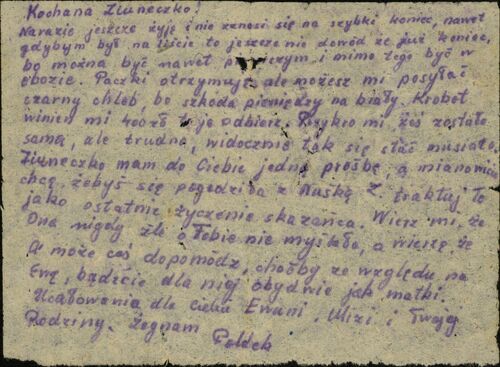 Kochana Ziuneczko!
Narazie jeszcze żyję i nie zanosi się na szybki koniec, nawet
gdybym był na liście to jeszcze nie dowód że już koniec,
bo można być nawet pierwszym i mimo tego być w
obozie. Paczki otrzymuję, ale możesz mi posyłać
czarny chleb, bo szkoda pieniędzy na biały. Krobot
winien mi 400 zł to je odbierz. Przykro mi, żeś została
sama, ale trudno, widocznie tak się stać musiało.
Ziuneczko mam do Ciebie jedną prośbę, a mianowicie
chcę, żebyś się pogodziła z Nuśką i traktuj to
jako ostatnie życzenie skazańca. Wierz mi, że
Ona nigdy źle o Tobie nie myślała, a wierzę, że
Ci może coś dopomódz, choćby ze względu na
Ewę, bądźcie dla niej obydwie jak matki.
Ucałowania dla ciebie Ewuni, i Twojej
Rodziny. Żegnam
Poldek